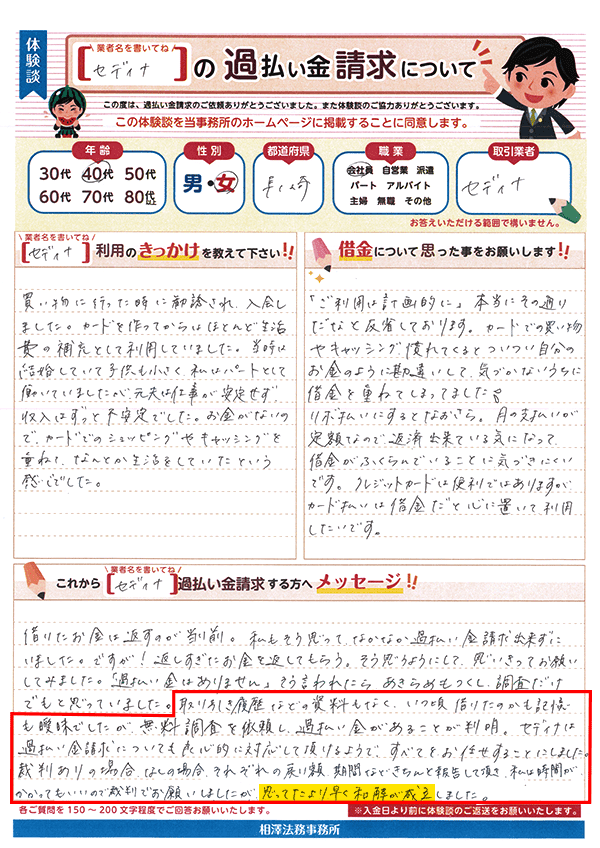 体験談
業者名を書いてね
[セディナ]の過払い金請求について
この度は、過払い金請求のご依頼ありがとうございました。また体験談のご協力ありがとうございます。
この体験談を当事務所のホームページに掲載することに同意します。
年齢
30代 40代 50代
60代 70代 80代以上
性別
男・女
都道府県
長崎
職業
会社員 自営業 派遣
パート アルバイト
主婦 無職 その他
取引業者
セディナ
お答えいただける範囲で構いません。
業者名を書いてね
[セディナ]利用のきっかけを教えて下さい!!
買い物に行った時に勧誘され、入会し
ました。カードを作ってからはほとんど生活
費の補充として利用していました。当時は
結婚していて子供も小さく、私はパートとして
働いていましたが、元夫は仕事が安定せず、
収入はずっと不安定でした。お金がないの
で、カードでのショッピングやキャッシングを
重ねて、なんとか生活をしていたという
感じでした。
借金について思った事をお願いします!!
「ご利用は計画的に」本当にその通り
だなと反省しております。カードでの買い物
やキャッシング、慣れてくるとついつい自分の
お金のように勘違いして、気づかないうちに
借金を重ねてしまってました。
リボ払いにするとなおさら。月の支払いが
定額なので返済出来ている気になって、
借金がふくらんでいることに気づきにくい
です。クレジットカードは便利ではありますが、
カード払いは借金だと心に置いて利用
したいです。
業者名を書いてね
これから[セディナ]過払い金請求する方へメッセージ!!
借りたお金は返すのが当り前。私もそう思って、なかなか過払い金請求出来ずに
いました。ですが!返しすぎたお金を返してもらう。そう思うようにして、思いきってお願い
してみました。「過払い金はありません」そう言われたらあきらめもつくし、調査だけ
でもと思っていました。取り引き履歴などの資料もなく、いつ頃借りたのかも記憶
も曖昧でしたが、無料調査を依頼し、過払い金があることが判明。セディナは
過払い金請求についても良心的に対応して頂けるようで、すべてをお任せすることにしました。
裁判ありの場合、なしの場合、それぞれの戻り額、期間などきちんと報告して頂き、私は時間が
かかってもいいので裁判でお願いしましたが、思ってたより早く和解が成立しました。
各ご質問を150～200文字程度でご回答お願いいたします。
※入金日より前に体験談のご返送をお願いいたします。
相澤法務事務所